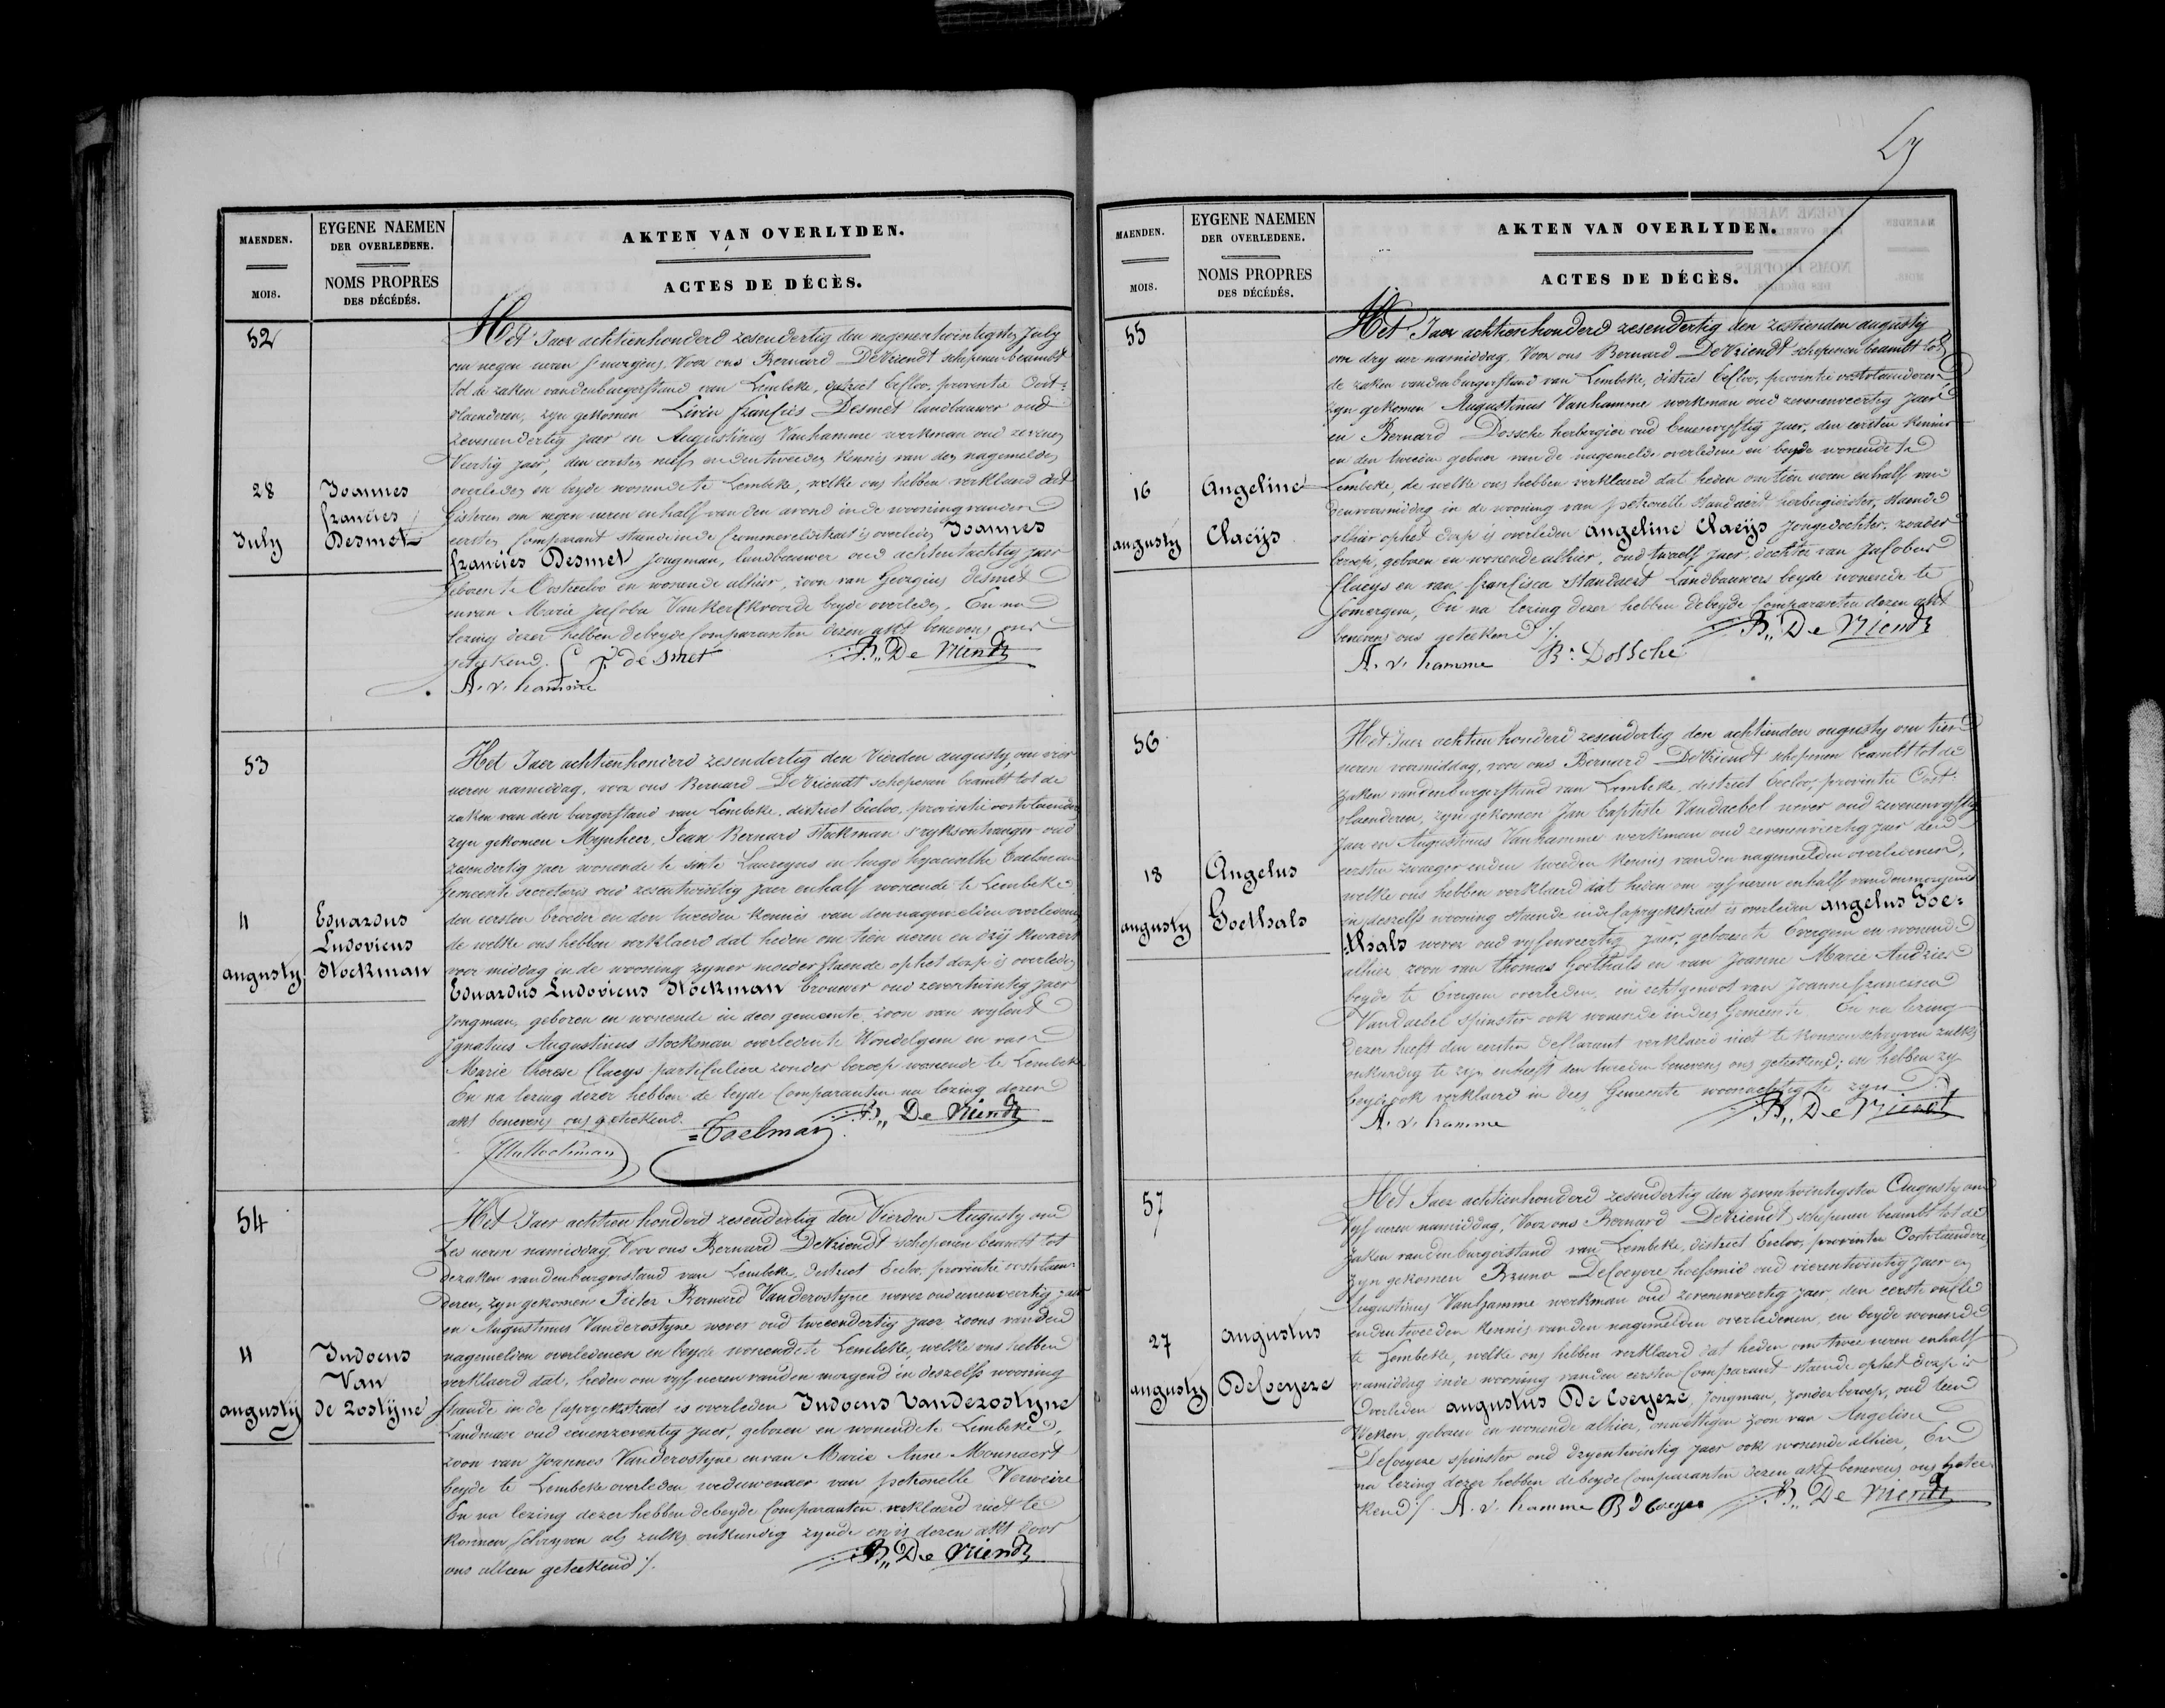 MAENDEN.
MOIS.
EYGENE NAEMEN
DER OVERLEDENE.
NOMS PROPRES
DES DÉCÉDÉS.
AKTEN VAN OVERLYDEN.
ACTES DE DÉCÈS.
52
28
July
Joannes
francies
Desmet
Het Jaer achtienhonderd zesendertig den negenentwintigsten July
om negen uren s'morgens, Voor ons Bernard DeVriendt schepenen beambt
tot de zaken vandenburgerstand van Lembeke, district Eecloo, provintie Oost-
vlaenderen, zyn gekomen Livin francies Desmet landbauwer oud
zevenendertig jaer en Augustinus Vanhamme werkman oud zevenen
Veertig jaer, den eersten neef en den tweeden kennis van den nagemelden
overleden en beyde wonende te Lembeke, welke ons hebben verklaerd dat
Gisteren om negen uren en half van den avond in de wooning van den
eersten Comparant staende in de straet is overleden Joannes
francies Desmet jongman, landbauwer oud achtentachtig jaer
Geboren te Oosteecloo en wonende alhier, zoon van Georgius Desmet
en van Marie Jacoba VanKerckvoorde beyde overleden. En na
lezing dezer hebben de beyde Comparanten dezen akt benevens ons
geteekend. L F de smet B,, De Vriendt
A. v. hamme
53
4
augusty
Eduardus
Ludovicus
Stockman
Het Jaer achtienhonderd zesendertig den Vierden augusty, om vier
ueren namiddag, voor ons Bernard DeVriendt schepenen beambt tot de
zaken van den burgerstand van Lembeke, district Eecloo, provintie oostvlaenderen
zyn gekomen Mynheer Jean Bernard Stockman s'ryksontvanger oud
zesendertig jaer wonende te sinte Laureyns en hugo hyacinthe Taelman
Gemeente secretaris oud zesentwintig jaer en half wonende te Lembeke
den eersten broeder en den tweeden kennis van den nagemelden overledenen
de welke ons hebben verklaerd dat heden om tien ueren en dry kwaert
voor middag in de wooning zyner moeder staende op het dorp is overleden
Eduardus Ludovicus Stockman brouwer oud zeventwintig jaer
Jongman, geboren en wonende in dees gemeente, zoon van wylent
Ignatius Augustinus Stockman overleden te Wondelgem en van
Marie therese Claeys particuliere zonder beroep wonende te Lembeke
En na lezing dezer hebben de beyde Comparanten na lezing dezen
akt benevens ons geteekend. Taelman B,, De Vriendt
54
4
augusty
Judocus
Van
de Rostÿne
Het Jaer achtien honderd zesendertig den Vierden Augusty om
Zes ueren namiddag Voor ons Bernard DeVriendt schepenen beambt tot
dezaken vandenburgerstand van Lembeke, district Eecloo, provintie oostvlaen-
deren, zyn gekomen Pieter Bernard Vanderostyne wever oud eenenveertig jaer
en Augustinus Vanderostyne wever oud tweeendertig jaer zoons vanden
nagemelden overledenen en beyde wonende te Lembeke, welke ons hebben
verklaerd dat, heden om vyf ueren vanden morgend in deszelfs wooning
staende in de Caprykstraet is overleden Judocus Vanderostyne
Landman oud eenenzeventig jaer, geboren en wonende te Lembeke,
zoon van Joannes Vanderostyne en van Marie Anne Monnaert
beyde te Lembeke overleden weduwenaer van petronelle Verweire
En na lezing dezer hebben debeyde Comparanten verklaerd niet te
konnen schryven als zulks onkundig zynde en is dezen akt door
ons alleen geteekend /. B,, De Vriendt
MAENDEN.
MOIS.
EYGENE NAEMEN
DER OVERLEDENE.
NOMS PROPRES
DES DÉCÉDÉS.
AKTEN VAN OVERLYDEN.
ACTES DE DÉCÈS.
55
16
augusty
Angeline
Claeÿs
Het Jaer achtienhonderd zesendertig den zestienden augusty
om dry uer namiddag, Voor ons Bernard DeVriendt schepenen beambt tot
de zaken vandenburgerstand van Lembeke, district Eecloo, provintie oostvlaenderen
zyn gekomen Augustinus Vanhamme werkman oud zevenenveertig jaer
en Bernard Dossche herbergier oud eenenvyftig jaer, den eersten kennis
en den tweeden gebuer van de nagemelde overledene en beyde wonende te
Lembeke, de welke ons hebben verklaerd dat heden om tien ueren en half van
denvoormiddag in de wooning van petronelle Standaert herbergierster, staende
alhier ophet dorp is overleden angeline Claeÿs jongedochter, zonder
beroep, geboren en wonende alhier, oud twaelf jaer, dochter van Jacobus
Claeys en van francisca Standaert Landbauwers beyde wonende te
Somergem, En na lezing dezer hebben debeyde Comparanten dezen akt
benevens ons geteekend /. B,, De Vriendt
A. v. hamme B: Dossche
56
18
augusty
Angelus
Goethals
Het Jaer achtien honderd zesendertig den achtienden augusty om tien
ueren voormiddag, voor ons Bernard DeVriendt schepenen beambt tot de
zaken vandenburgerstand van Lembeke, district Eecloo, provintie Oost-
vlaenderen, zyn gekomen Jan baptiste Vandaebel wever oud zevenenvyftig
Jaer en Augustinus Vanhamme werkman oud zevenenveertig jaer den
eersten zwaeger enden tweeden kennis vanden nagemelden overledenen,
welke ons hebben verklaerd dat heden om vyf ueren enhalf vandenmorgend
in deszelfs wooning staende indeCaprykstraet is overleden angelus Goe-
thals wever oud vyfenveertig jaer, geboren te Evergem en wonende
alhier zoon van thomas Goethals en van Joanne Marie Audries
beyde te Evergem overleden, en echtgenoot van Joanne francisca
Vandaebel spinster ook wonende indees Gemeente. En na lezing
Dezer heeft den eersten Declarant verklaerd niet te konnen schryven zulks
onkundig te zyn enheeft den tweeden benevens ons geteekend; en hebben zy
beyde ook verklaerd in dees Gemeente woonachtig te zyn /.
A. v. hamme B,, De Vriendt
57
27
augusty
augustus
DeCoeyere
Het Jaer achtienhonderd zesendertig den zeventwintigsten Augusty om
Vyf ueren namiddag, Voor ons Bernard DeVriendt schepenen beambt tot de
zaken vandenburgerstand van Lembeke, district Eecloo, provintie Oostvlaenderen,
zyn gekomen Bruno DeCoeyere hoefsmid oud vierentwintig jaer en
Augustinus Vanhamme werkman oud zevenenveertig jaer, den eerste oncle
enden tweeden kennis vanden nagemelden overledenen, en beyde wonende
te Lembeke, welke ons hebben verklaerd dat heden om twee ueren enhalf
namiddag inde wooning vanden eersten Comparant staende ophet dorp is
Overleden augustus De Coeyere, Jongman, zonder beroep, oud tien
Weken, geboren en wonende alhier, onwettigen zoon van Angeline
DeCoeyere spinster oud dryentwintig jaer ook wonende alhier, En
na lezing dezer hebben debeyde Comparanten dezen akt benevens ons getee-
kend /. A. v. hamme B D Coeyer B,, De Vriendt